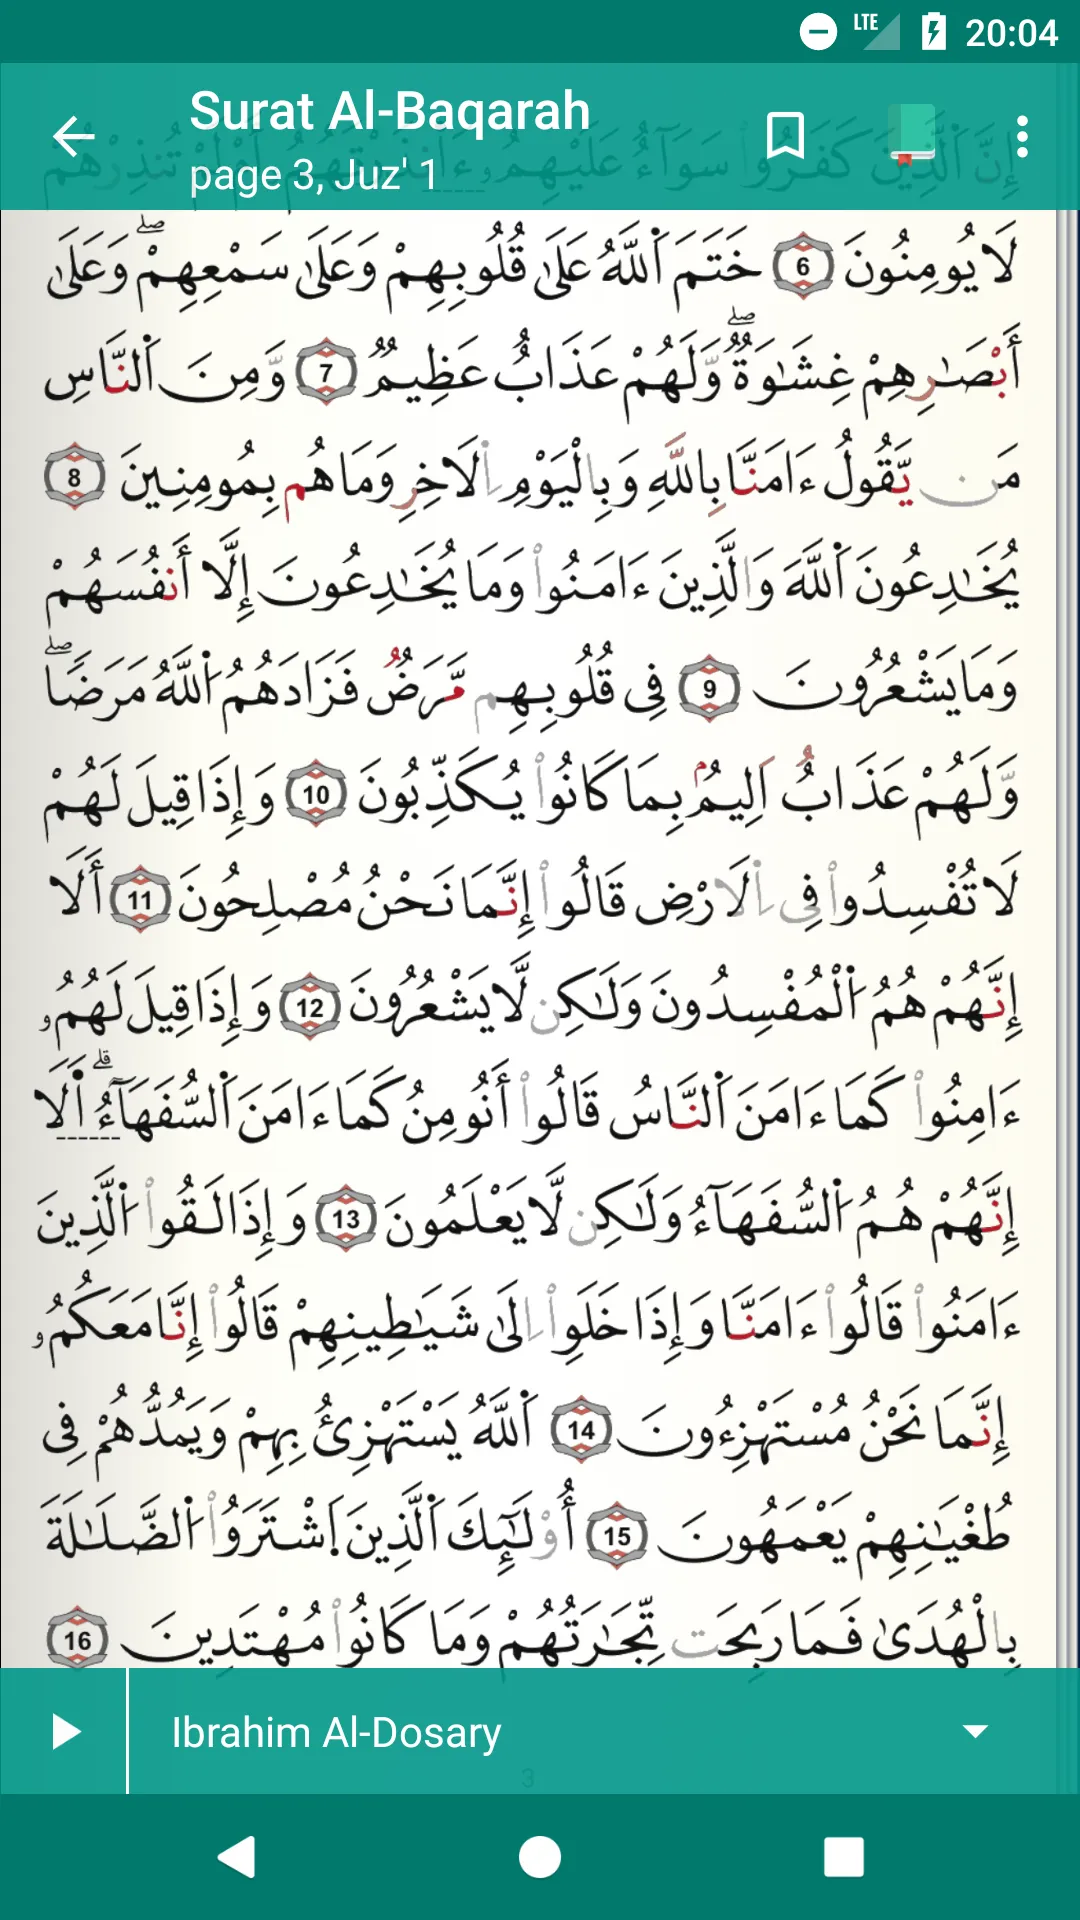 LTE 20:04
Surat Al-Baqarah
page 3, Juz' 1
إِنَّ اَ۬لذِينَ كَفَرُواْ سَوَآءٌ عَلَيْهِمُۥٓ ءَا۬نذَرْتَهُمُۥٓ أَمْ لَمْ تُنذِرْهُمْ
لَا يُومِنُونَ 6 خَتَمَ اَ۬للَّهُ عَلَىٰ قُلُوبِهِمْ وَعَلَىٰ سَمْعِهِمْۖ وَعَلَىٰ
أَبْصَٰرِهِمْ غِشَٰوَةٌۖ وَلَهُمْ عَذَابٌ عَظِيمٌ 7 وَمِنَ اَ۬لنَّاسِ
مَن يَّقُولُ ءَامَنَّا بِاللَّهِ وَبِالْيَوْمِ اِ۬لَاخِرِ وَمَا هُم بِمُومِنِينَ 8
يُخَٰدِعُونَ اَ۬للَّهَ وَالَّذِينَ ءَامَنُواْ وَمَا يُخَٰدِعُونَ إِلَّا أَنفُسَهُمْ
وَمَا يَشْعُرُونَ 9 فِى قُلُوبِهِم مَّرَضٌ فَزَادَهُمُ اُ۬للَّهُ مَرَضًاۖ
وَلَهُمْ عَذَابٌ اَلِيمٌۢ بِمَا كَانُواْ يُكَذِّبُونَ 10 وَإِذَا قِيلَ لَهُمْ
لَا تُفْسِدُواْ فِى اِ۬لَارْضِ قَالُواْ إِنَّمَا نَحْنُ مُصْلِحُونَ 11 أَلَا
إِنَّهُمْ هُمُ اُ۬لْمُفْسِدُونَ وَلَٰكِن لَّا يَشْعُرُونَ 12 وَإِذَا قِيلَ لَهُمُۥ
ءَامِنُواْ كَمَا ءَامَنَ اَ۬لنَّاسُ قَالُواْ أَنُومِنُ كَمَا ءَامَنَ اَ۬لسُّفَهَآءُۗ اَلَا
إِنَّهُمْ هُمُ اُ۬لسُّفَهَآءُ وَلَٰكِن لَّا يَعْلَمُونَ 13 وَإِذَا لَقُواْ اُ۬لَّذِينَ
ءَامَنُواْ قَالُواْ ءَامَنَّا وَإِذَا خَلَوِاْ اِلَىٰ شَيَٰطِينِهِمْ قَالُواْ إِنَّا مَعَكُمُۥ
إِنَّمَا نَحْنُ مُسْتَهْزِءُونَ 14 اَ۬للَّهُ يَسْتَهْزِئُ بِهِمْ وَيَمُدُّهُمْ فِى
طُغْيَٰنِهِمْ يَعْمَهُونَ 15 أُوْلَٰٓئِكَ اَ۬لَّذِينَ اَ۪شْتَرَوُاْ اُ۬لضَّلَٰلَةَ
بِالْهُدَىٰ فَمَا رَبِحَت تِّجَٰرَتُهُمْ وَمَا كَانُواْ مُهْتَدِينَ 16
Ibrahim Al-Dosary
3